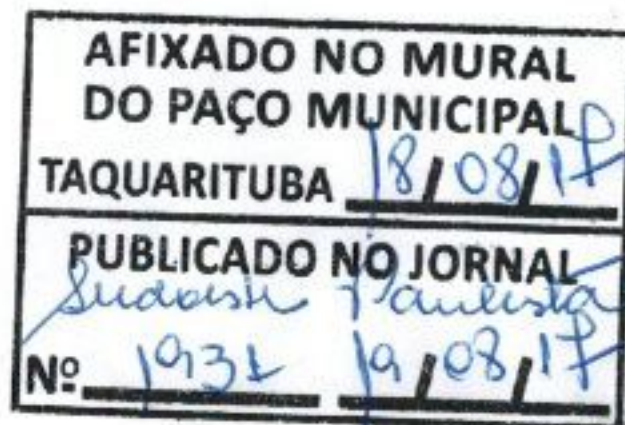 AFIXADO NO MURAL
DO PAÇO MUNICIPAL
TAQUARITUBA 18/08/17
PUBLICADO NO JORNAL
Sudoeste Paulista
Nº 1931 19/08/17